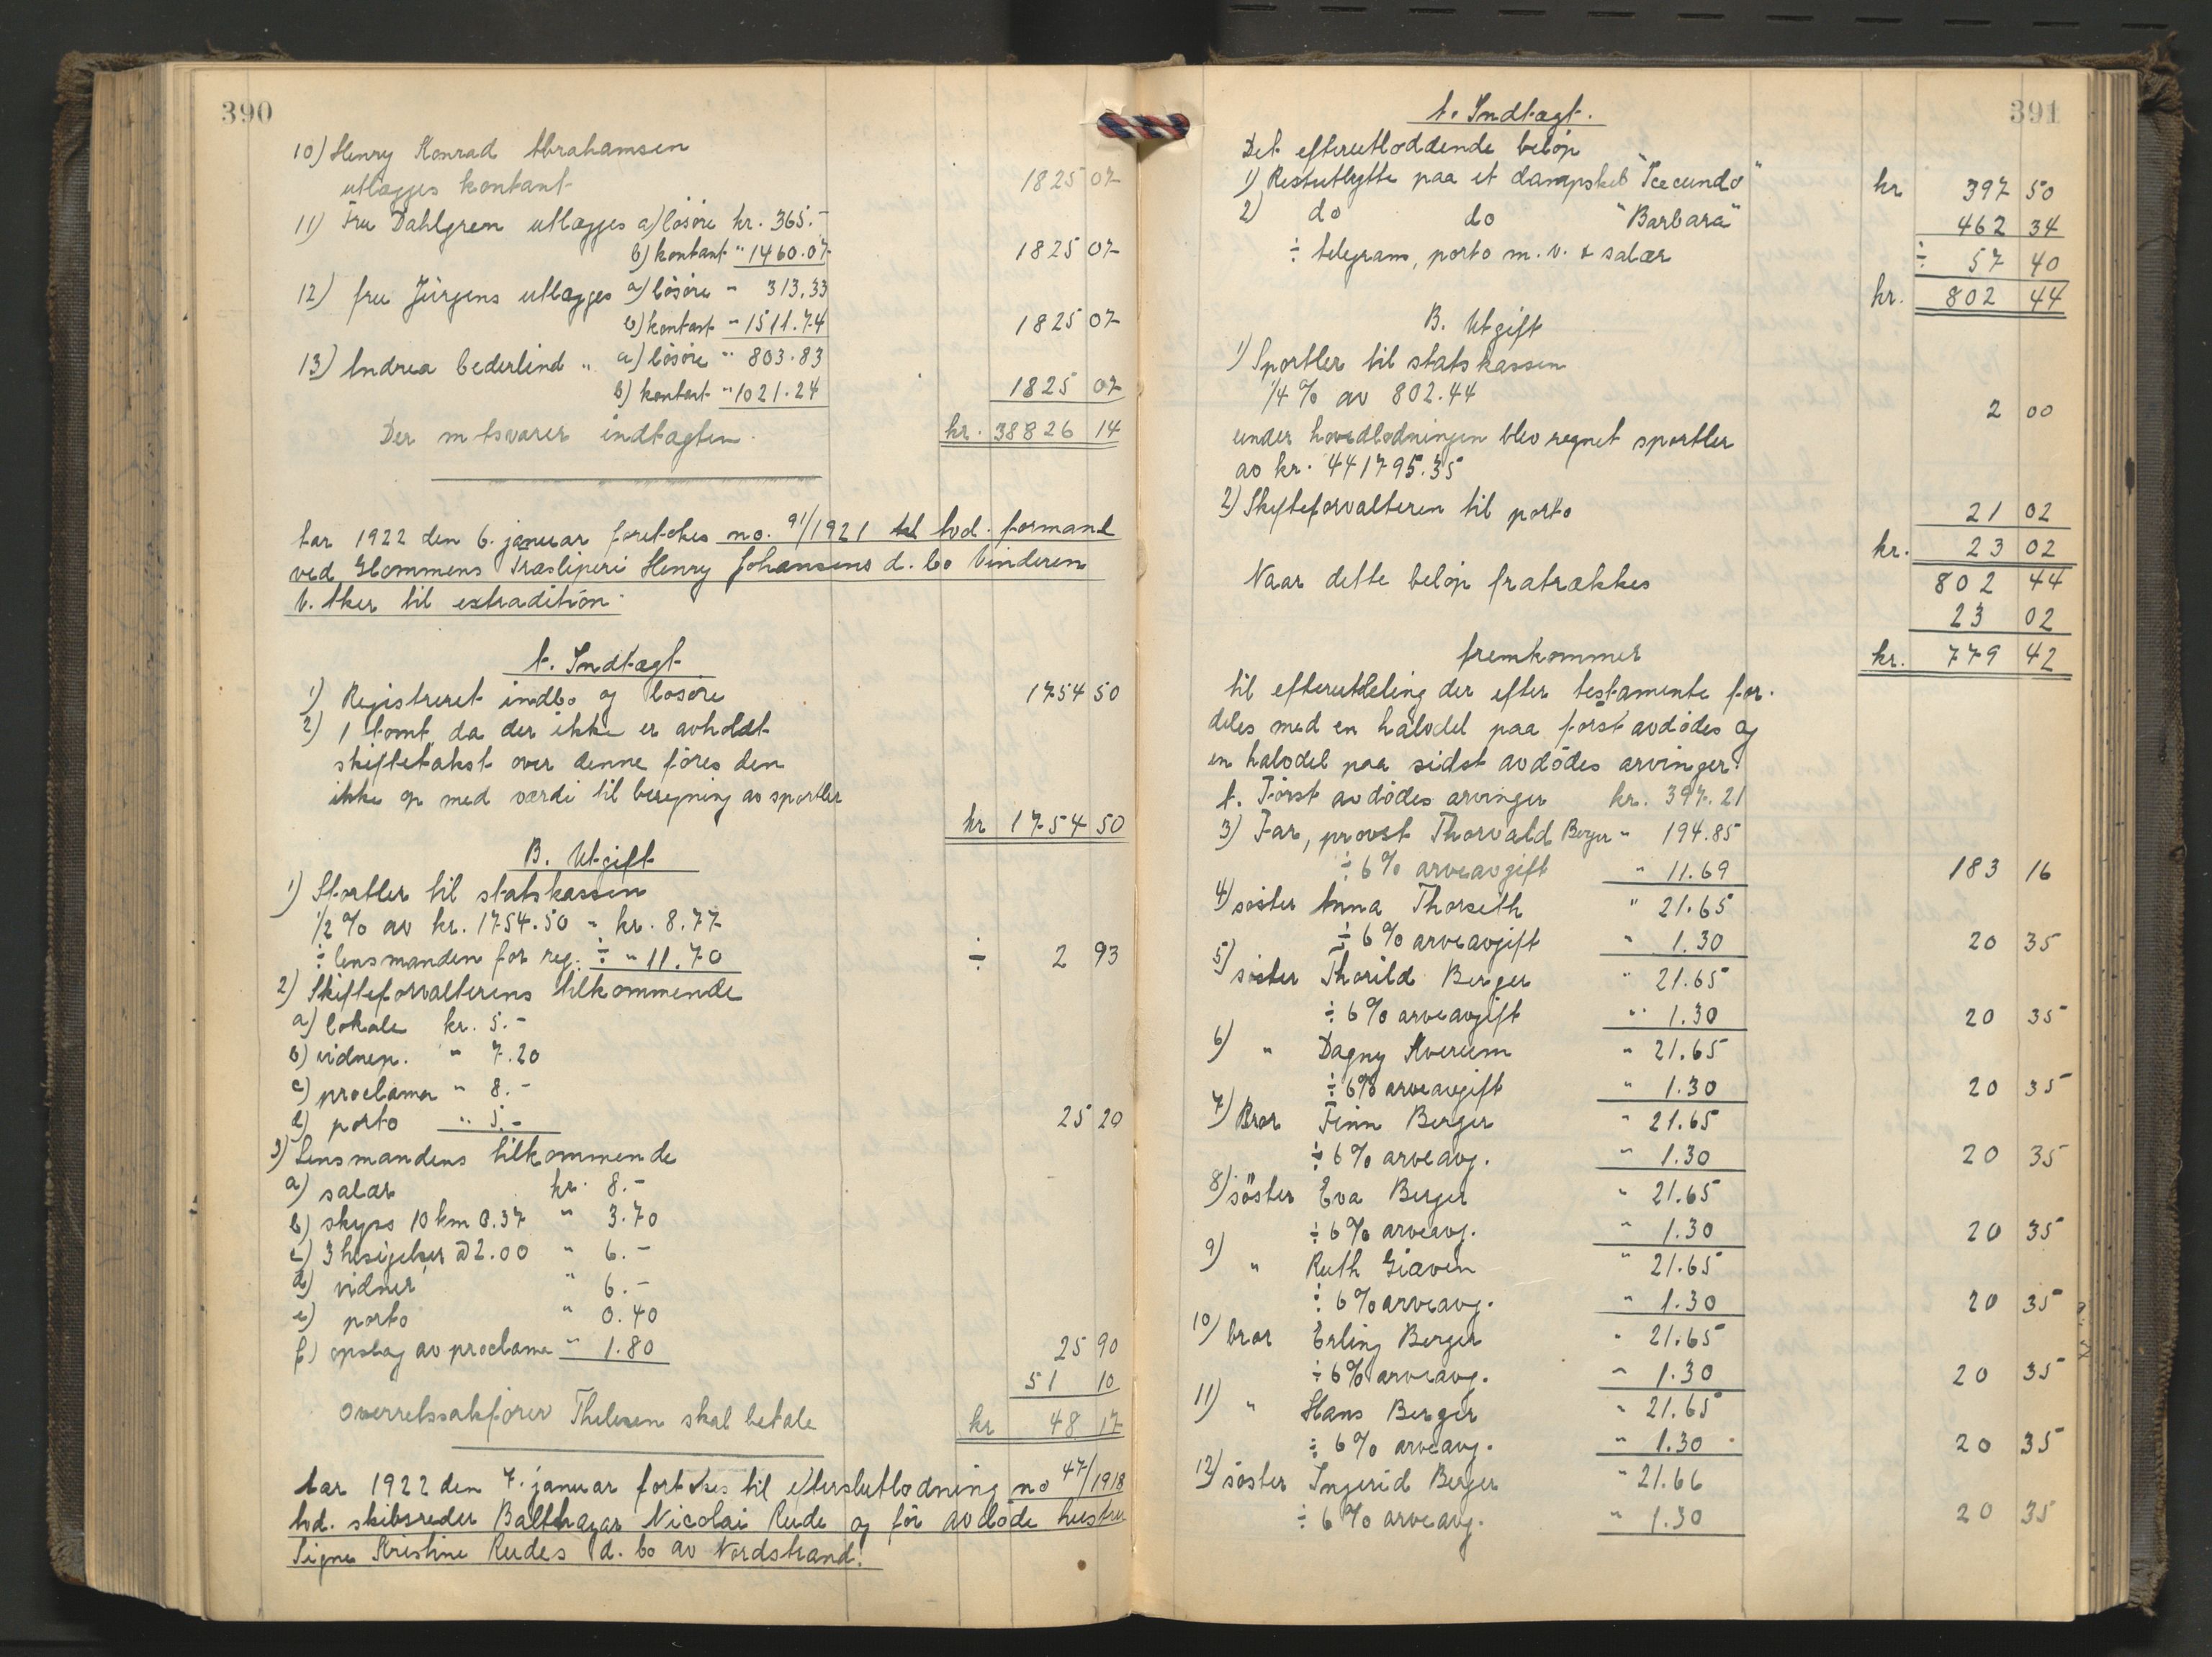 390
10) Henry Konrad Abrahamsen
utlægges kontant 1825 07
11) Fru Dahlgren utlægges a) løsøre kr. 365.-
b) kontant " 1460.07 1825 07
12) fru Jürgens utlægges a) løsøre " 313.33
b) kontant " 1511.74 1825 07
13) Andrea Cederlind " a) løsøre " 803.83
b) kontant " 1021.24 1825 07
Der motsvarer indtægten kr. 38826 14
Aar 1922 den 6. januar foretokes no. 91/1921 avd. formand
ved Glommens Træsliperi Henry Johansens d. bo Vinderen
V. Aker til extradition.
A. Indtægt
1) Registreret indbo og løsøre 1754 50
2) 1 tomt, da der ikke er avholdt
skiftetakst over denne føres den
ikke op med værdi til beregning av sportler
kr 1754 50
B. Utgift
1) Sportler til statskassen
1/2 % av kr. 1754.50 - kr. 8.77
÷ lensmanden for reg. ÷ " 11.70 ÷ 2 93
2) Skifteforvalterens tilkommende
a) lokale kr. 5.-
b) vidnep. " 7.20
c) proclama " 8.-
d) porto " 5.- 25 20
3) Lensmandens tilkommende
a) salær kr. 8.-
b) skyss 10 km 0.37 " 3.70
c) 3 hesigelser a 2.00 " 6.-
d) vidner " 6.-
e) porto " 0.40
f) opslag av proclama " 1.80 25 90
51 10
Overretssakfører Thelesen skal betale kr 48 17
Aar 1922 den 7. januar fortokes til efterslutlodning no 47/1918
avd. skibsreder Balthazar Nicolai Rude og før avdøde hustru
Signe Kristine Rudes d. bo av Nordstrand.
391
A. Indtægt.
Det efterutloddende beløp
1) Restutbytte paa et dampskib "Secundo" kr 397 50
2) do do "Barbara" 462 34
÷ telegram, porto m. v. & salær ÷ 57 40
kr. 802 44
B. Utgift
1) Sportler til statskassen
1/4 % av 802.44 2 00
under hovedlodningen blev regnet sportler
av kr. 441795.35
2) Skifteforvalteren til porto 21 02
kr. 23 02
Naar dette beløp fratrækkes 802 44
23 02
fremkommer kr. 779 42
til efterutdeling der efter testamente for-
deles med en halvdel paa først avdødes og
en halvdel paa sidst avdødes arvinger.
A. Først avdødes arvinger kr. 397.21
3) Far, provst Thorvald Berger " 194.85
÷ 6% arveavgift " 11.69 183 16
4) søster Anna Thorseth " 21.65
÷ 6% arveavgift " 1.30 20 35
5) søster Thorild Berger " 21.65
÷ 6% arveavgift " 1.30 20 35
6) " Dagny Kverum " 21.65
÷ 6% arveavgift " 1.30 20 35
7) Bror Finn Berger " 21.65
÷ 6% arveavg. " 1.30 20 35
8) søster Eva Berger " 21.65
÷ 6% arveavg. " 1.30 20 35
9) " Ruth Giæver " 21.65
÷ 6% arveavg. " 1.30 20 35
10) bror Erling Berger " 21.65
÷ 6% arveavg. " 1.30 20 35
11) " Hans Berger " 21.65
÷ 6% arveavg. " 1.30 20 35
12) søster Ingerid Berger " 21.66
÷ 6% arveavg. " 1.30 20 35